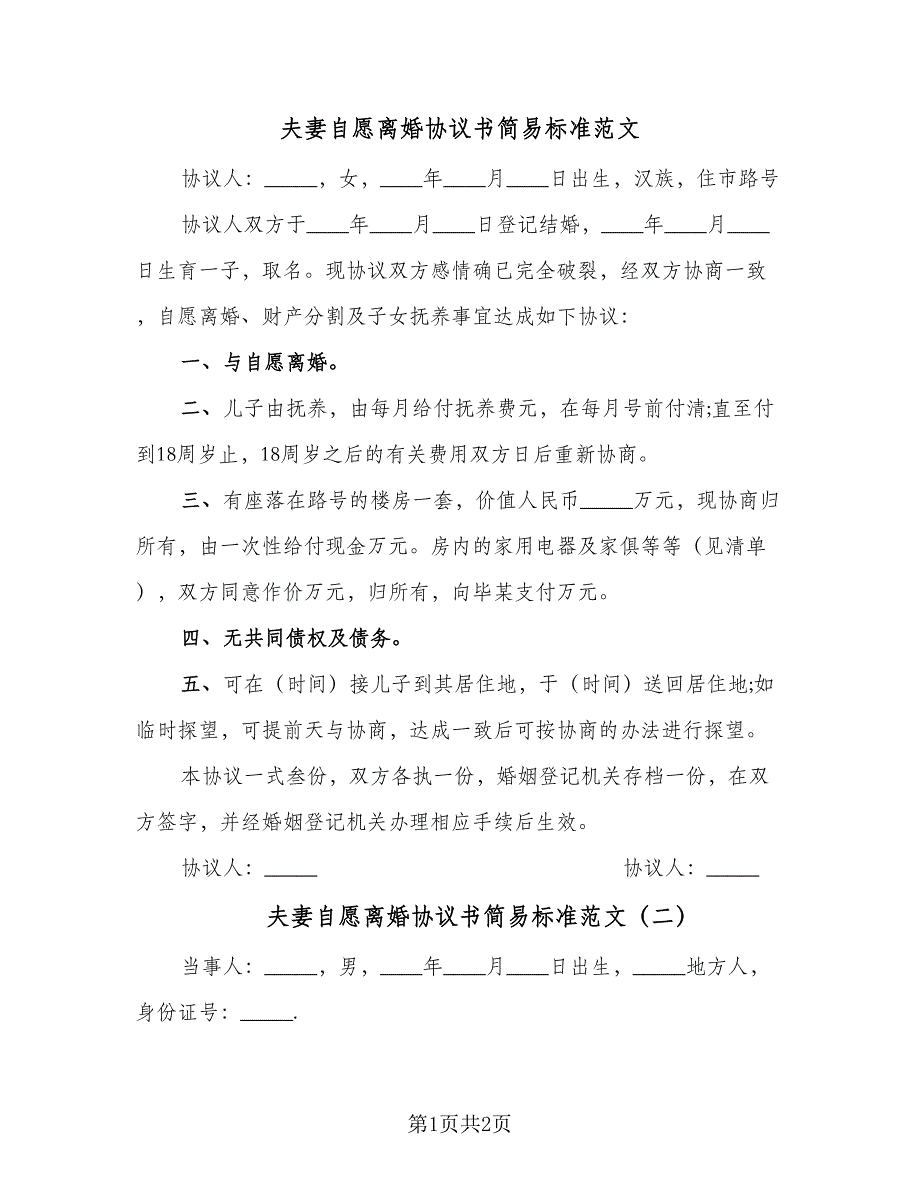 夫妻自愿离婚协议书简易标准范文
协议人：_____，女，____年____月____日出生，汉族，住市路号
协议人双方于____年____月____日登记结婚，____年____月____
日生育一子，取名。现协议双方感情确已完全破裂，经双方协商一致
，自愿离婚、财产分割及子女抚养事宜达成如下协议：
一、与自愿离婚。
二、儿子由抚养，由每月给付抚养费元，在每月号前付清;直至付
到18周岁止，18周岁之后的有关费用双方日后重新协商。
三、有座落在路号的楼房一套，价值人民币_____万元，现协商归
所有，由一次性给付现金万元。房内的家用电器及家俱等等（见清单
），双方同意作价万元，归所有，向毕某支付万元。
四、无共同债权及债务。
五、可在（时间）接儿子到其居住地，于（时间）送回居住地;如
临时探望，可提前天与协商，达成一致后可按协商的办法进行探望。
本协议一式叁份，双方各执一份，婚姻登记机关存档一份，在双
方签字，并经婚姻登记机关办理相应手续后生效。
协议人：_____ 协议人：_____
夫妻自愿离婚协议书简易标准范文（二）
当事人：_____，男，____年____月____日出生，_____地方人，
身份证号：_____.
第1页共2页